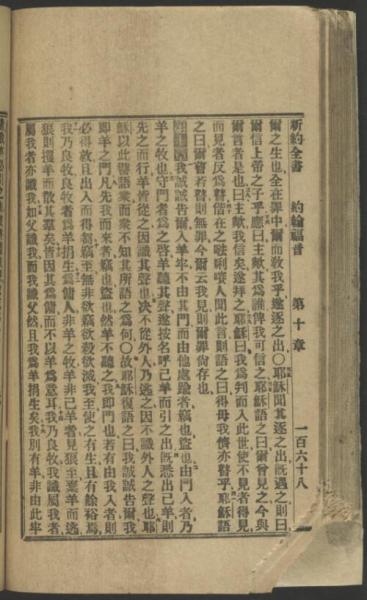 新約全書　約翰福音　第十章　一百六十八
爾之生也全在罪中爾而敎我乎遂逐之出〇耶穌聞其逐之出旣遇之則曰
爾信上帝之子乎應曰主歟其爲誰俾我可信之耶穌語之曰爾曾見之今與
爾言者是也曰主歟我信矣遂拜之耶穌曰我爲判而入此世使不見者得見
而見者反爲瞽偕在之𠵽唎㘔人聞此言則語之曰得毋我儕亦瞽乎耶穌語
之曰爾曹若瞽則無罪今爾云我見則爾罪尙存也
我誠誠告爾入羊牢不由其門而由他處踰者竊也盜也由門入者乃
羊之牧也守門者爲之啓羊聽其聲遂按名呼己羊而引之出旣悉出己羊則
先之而行羊皆從之因識其聲也決不從外人乃逃之因不識外人之聲也耶
穌以此譬語衆而衆不知其所語之爲何〇故耶穌復語之曰我誠誠告爾我
卽羊之門凡先我而來者竊也盜也然羊不聽之我卽門也若有由我入者則
必得救且出入而得芻竊至無非欲竊欲殺欲滅我至使之有生且有餘裕焉
我乃良牧良牧者爲羊捐生爲傭人非羊之牧羊非己羊者見狼至棄羊而逃
狼則攫羊而散其羣矣皆因其爲傭而不以羊爲意耳我乃良牧我識屬我者
屬我者亦識我如父識我而我識父然且我爲羊捐生矣我別有羊非由此牢